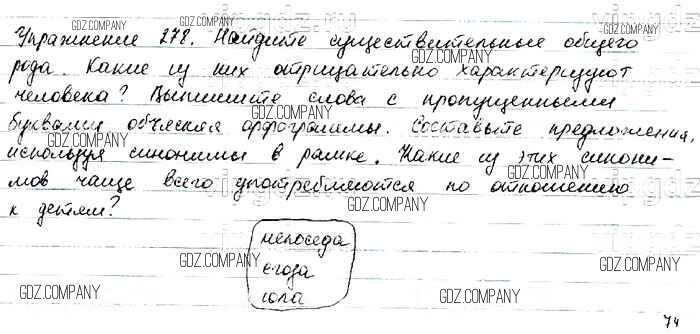 Упражнение 278. Найдите существительные общего
рода. Какие из них отрицательно характеризуют
человека? Выпишите слова с пропущенными
буквами объясняя орфограммы. Составьте предложения,
используя синонимы в рамке. Какие из этих синони-
мов чаще всего употребляются по отношению
к детям?
непоседа
егоза
юла
74
GDZ.COMPANY
GDZ.COMPANY
GDZ.COMPANY
GDZ.COMPANY
GDZ.COMPANY
GDZ.COMPANY
GDZ.COMPANY
GDZ.COMPANY
GDZ.COMPANY
GDZ.COMPANY
GDZ.COMPANY
GDZ.COMPANY
GDZ.COMPANY